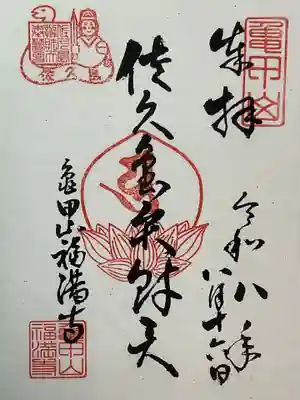 龜甲山
奉拝
令和八年
八月十六日
佐久島弁財天
佐久島
亀甲山福満寺
龜甲山
福満寺